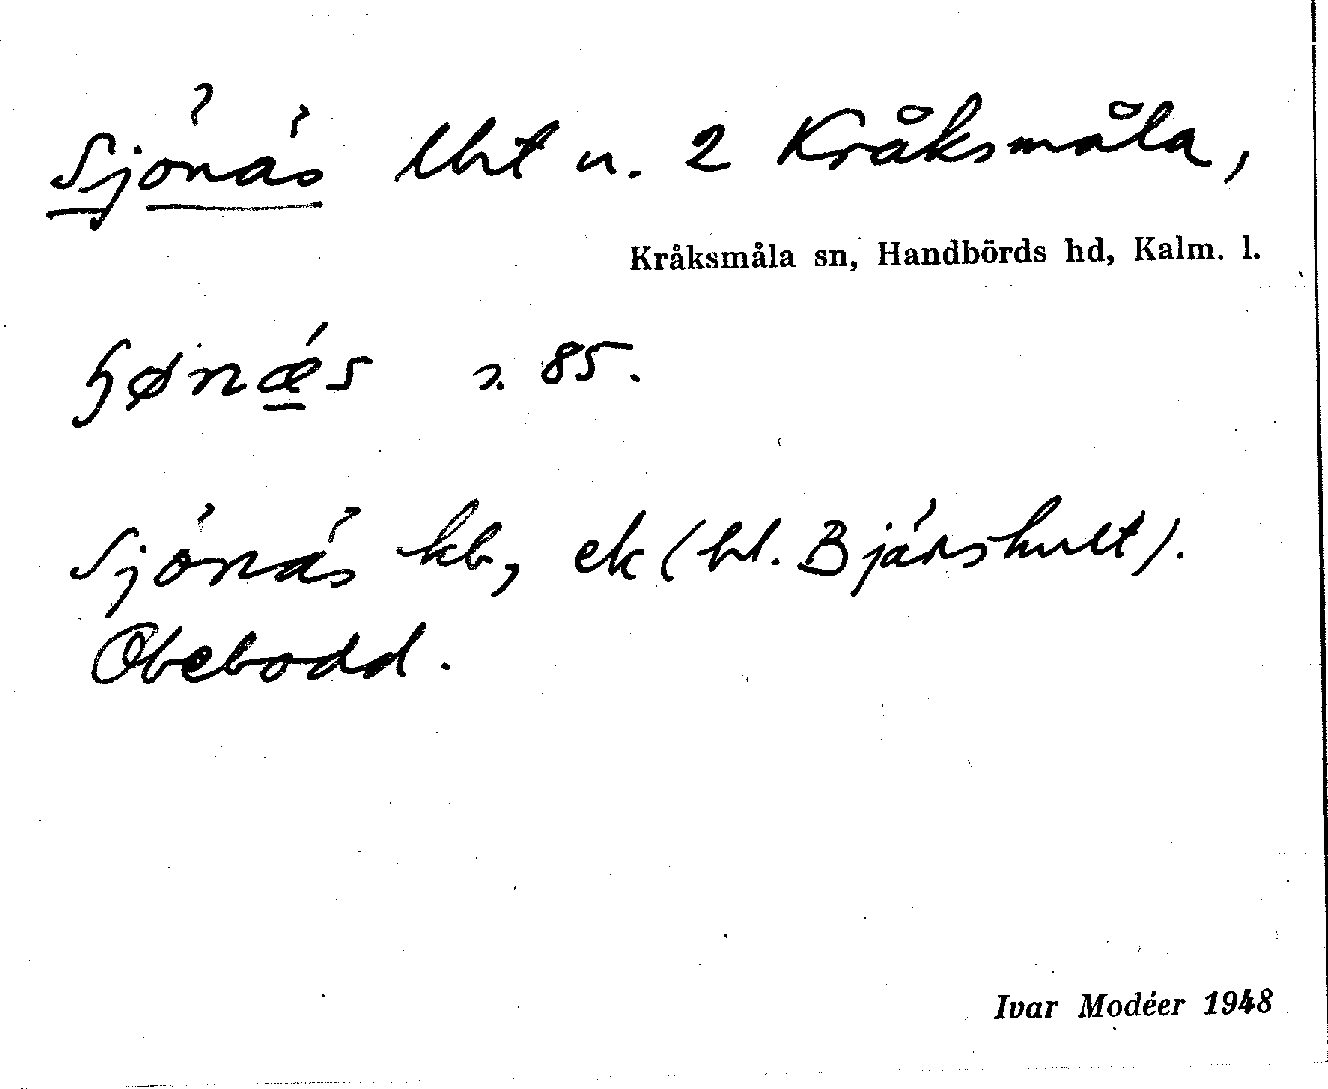 Sjönäs lht u. 2 Kråksmåla,
Kråksmåla sn, Handbörds hd, Kalm. l.
ɧønǽs s. 85.
Sjönäs kb, ek (bl. Bjärshult).
Obebodd.
Ivar Modéer 1948